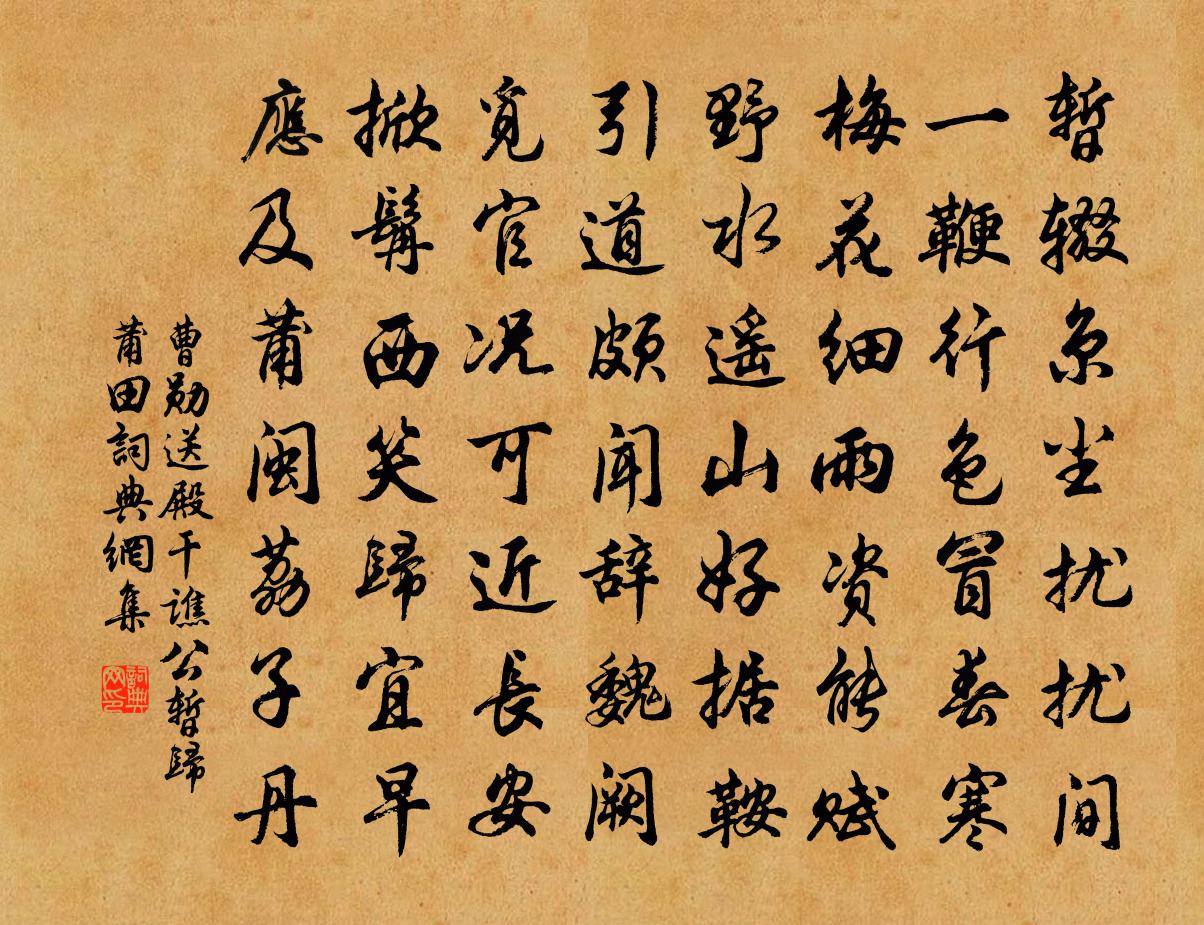 暫辍京尘扰扰间
一鞭行色冒春寒
梅花细雨资能赋
野水遥山好据鞍
引道颇闻辞魏阙
覓官况可近長安
掀髯西笑歸宜早
應及莆闽荔子丹
曹勋送殿干譙公暫歸
莆田詞典網集
詞典网印